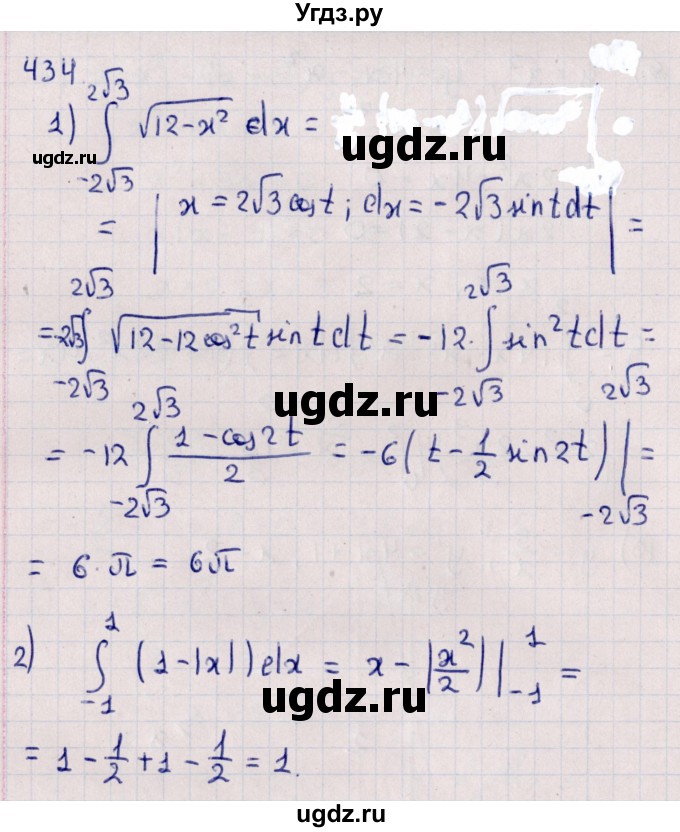 Угдз.ру
434
1) ∫_{-2√3}^{2√3} √(12-x²) dx =
gdz.ru
ugdz.ru
ugdz.ru
= | x = 2√3 cos t ; dx = -2√3 sin t dt | =
= -2√3 ∫_{-2√3}^{2√3} √(12-12cos²t) sin t dt = -12 · ∫_{-2√3}^{2√3} sin²t dt =
ugdz.ru
= -12 ∫_{-2√3}^{2√3} (1-cos2t)/2 = -6(t - 1/2 sin2t) |_{-2√3}^{2√3} =
= 6·π = 6π
ugdz.ru
ugdz.ru
2) ∫_{-1}^{1} (1-|x|) dx = x - |x²/2| |_{-1}^{1} =
= 1 - 1/2 + 1 - 1/2 = 1.
ugdz.ru
ugdz.ru